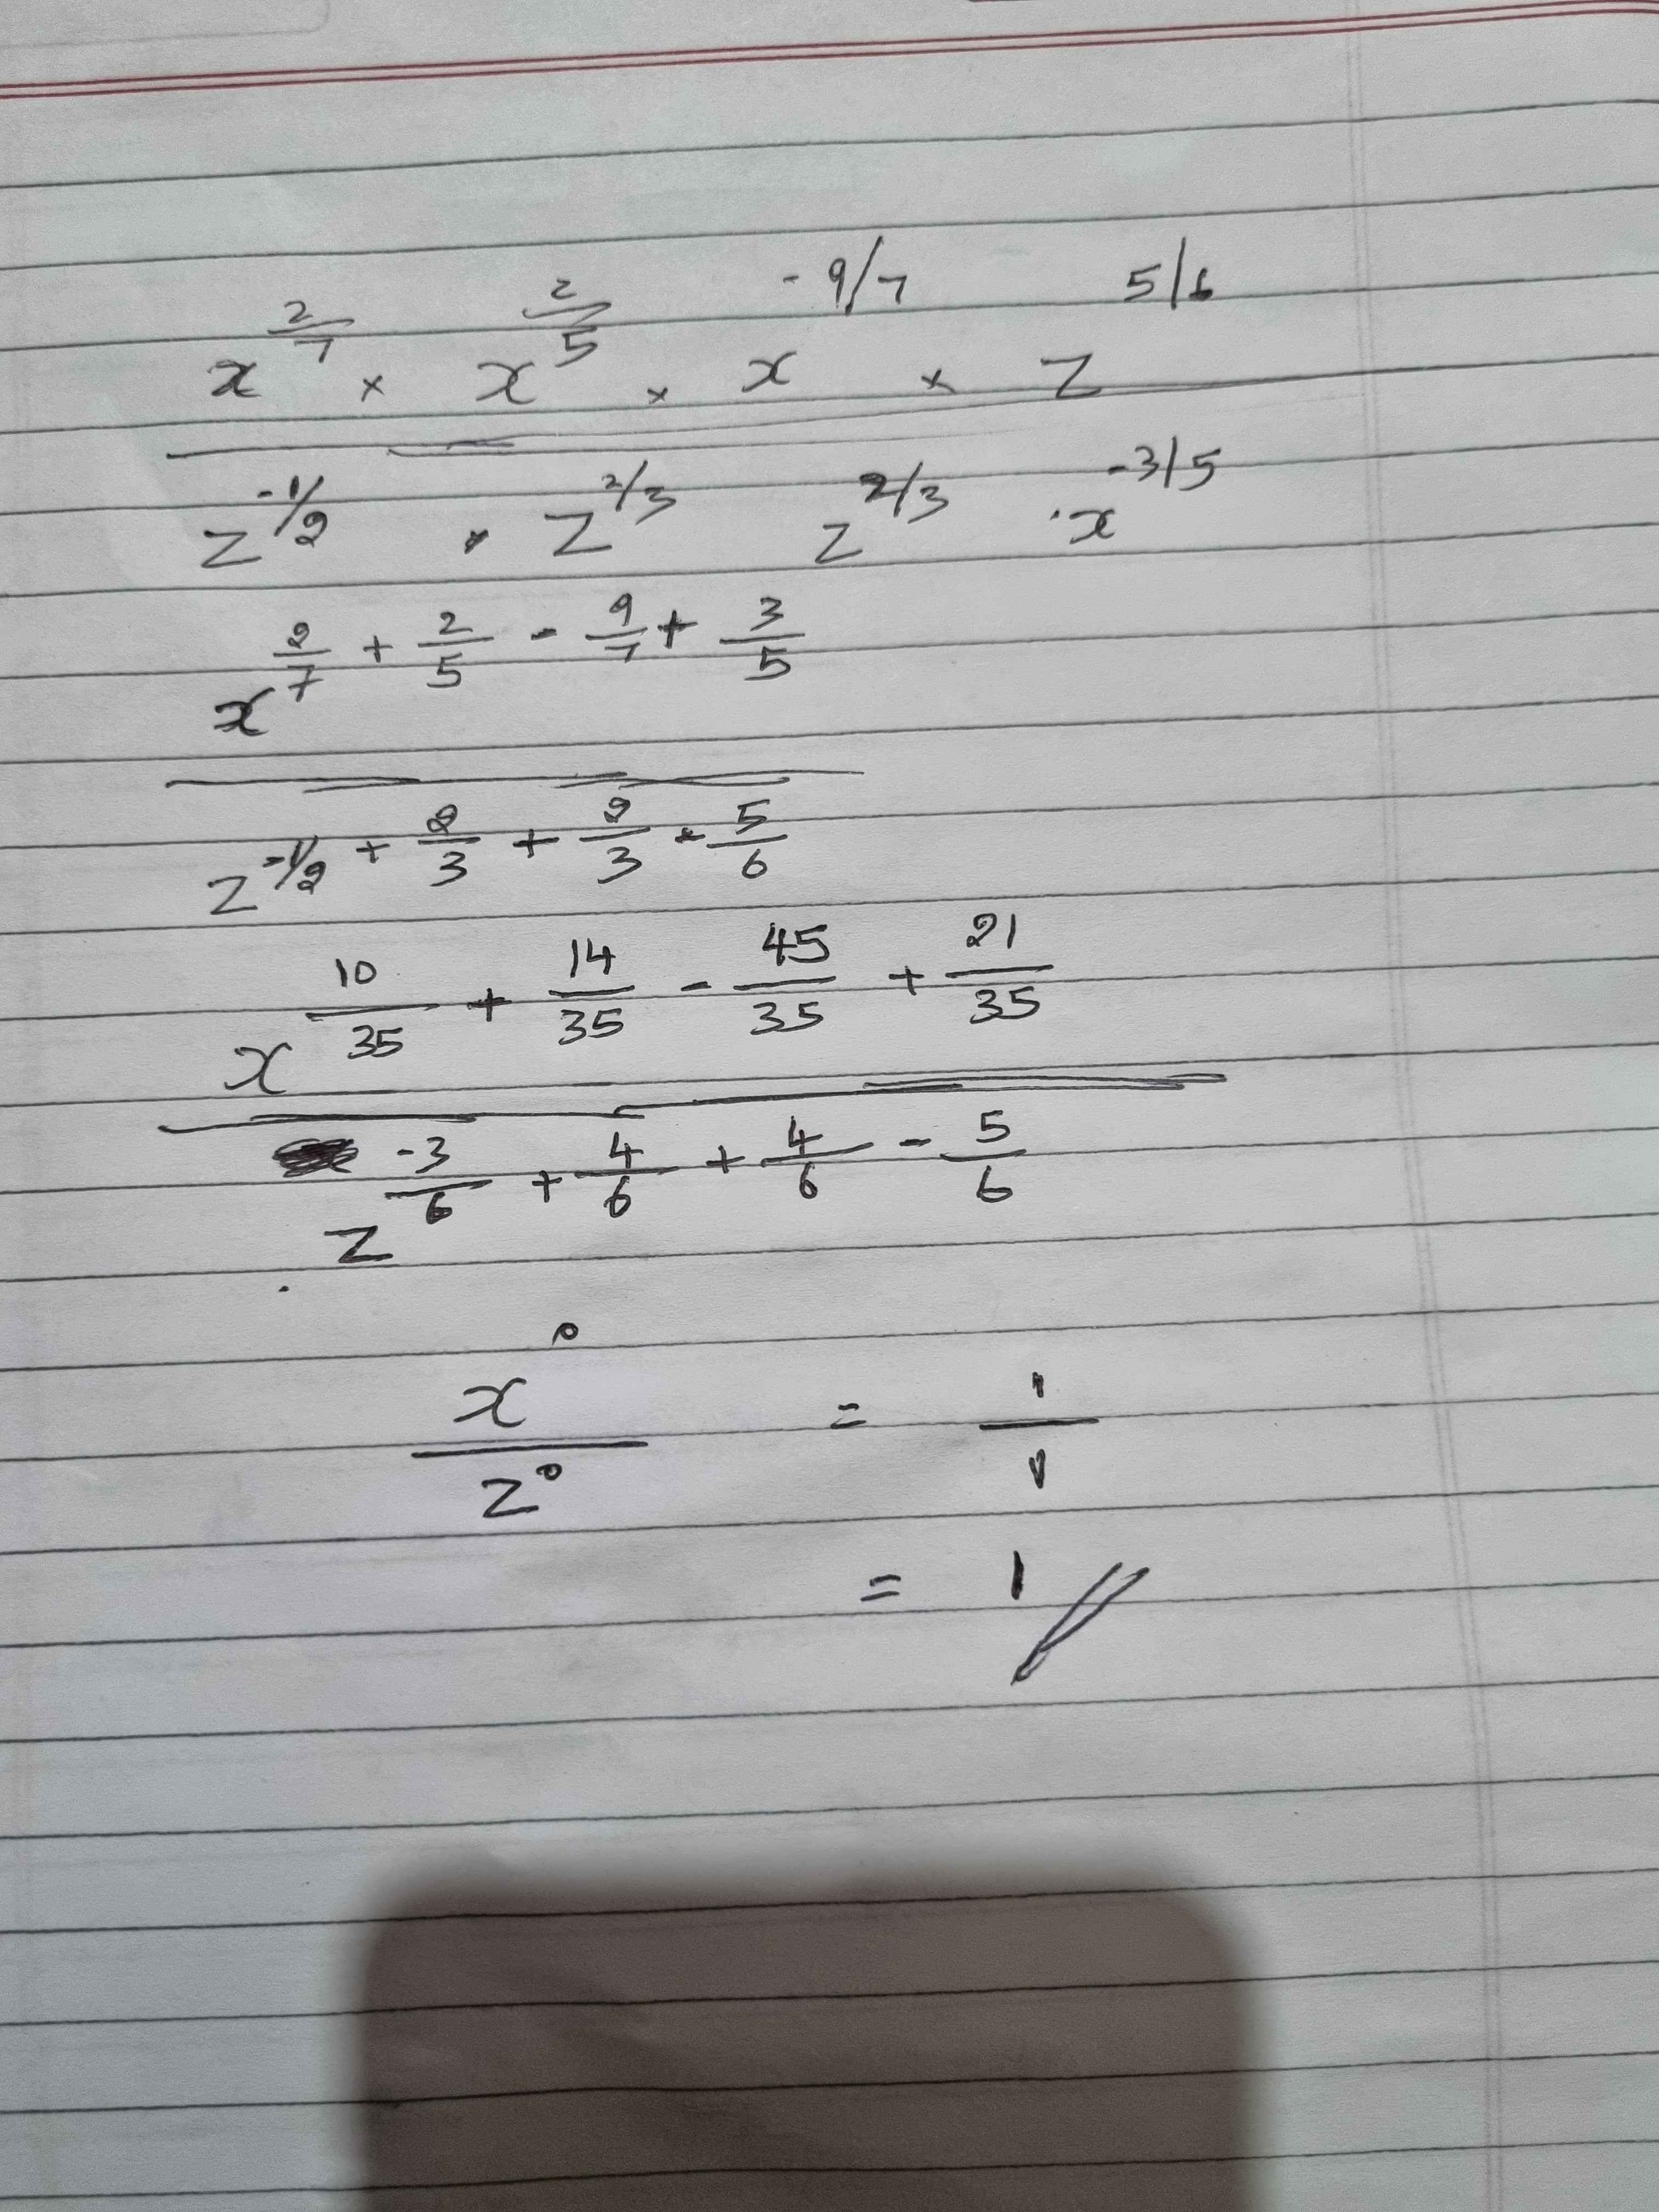 x^{2/7} × x^{2/5} × x^{-9/7} × z^{5/6}
z^{-1/2} · z^{2/3} z^{2/3} · x^{-3/5}
x^{2/7 + 2/5 - 9/7 + 3/5}
z^{-1/2 + 2/3 + 2/3 - 5/6}
x^{10/35 + 14/35 - 45/35 + 21/35}
z^{-3/6 + 4/6 + 4/6 - 5/6}
x^0 / z^0 = 1/1
= 1